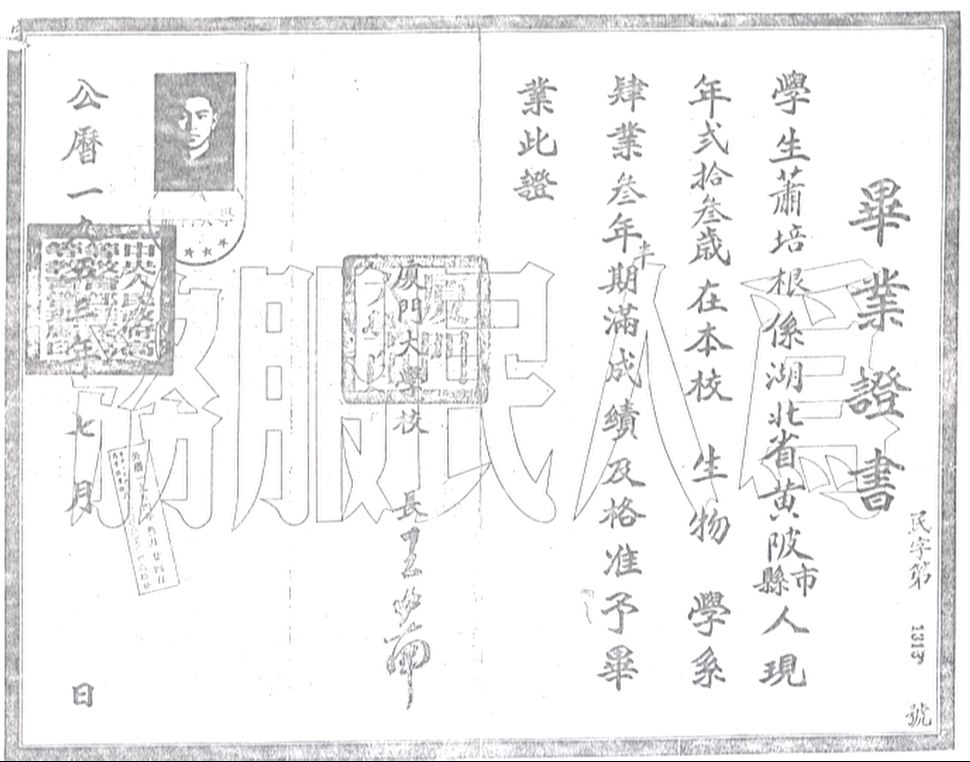 畢業證書
民字第1313號
學生蕭培根係湖北省黃陂市縣人現
年弍拾叁歲在本校生物學系
肄業叁年半期滿成績及格准予畢
業此證
廈門大學校長王亞南
公曆一九五三年七月日
為人民服務